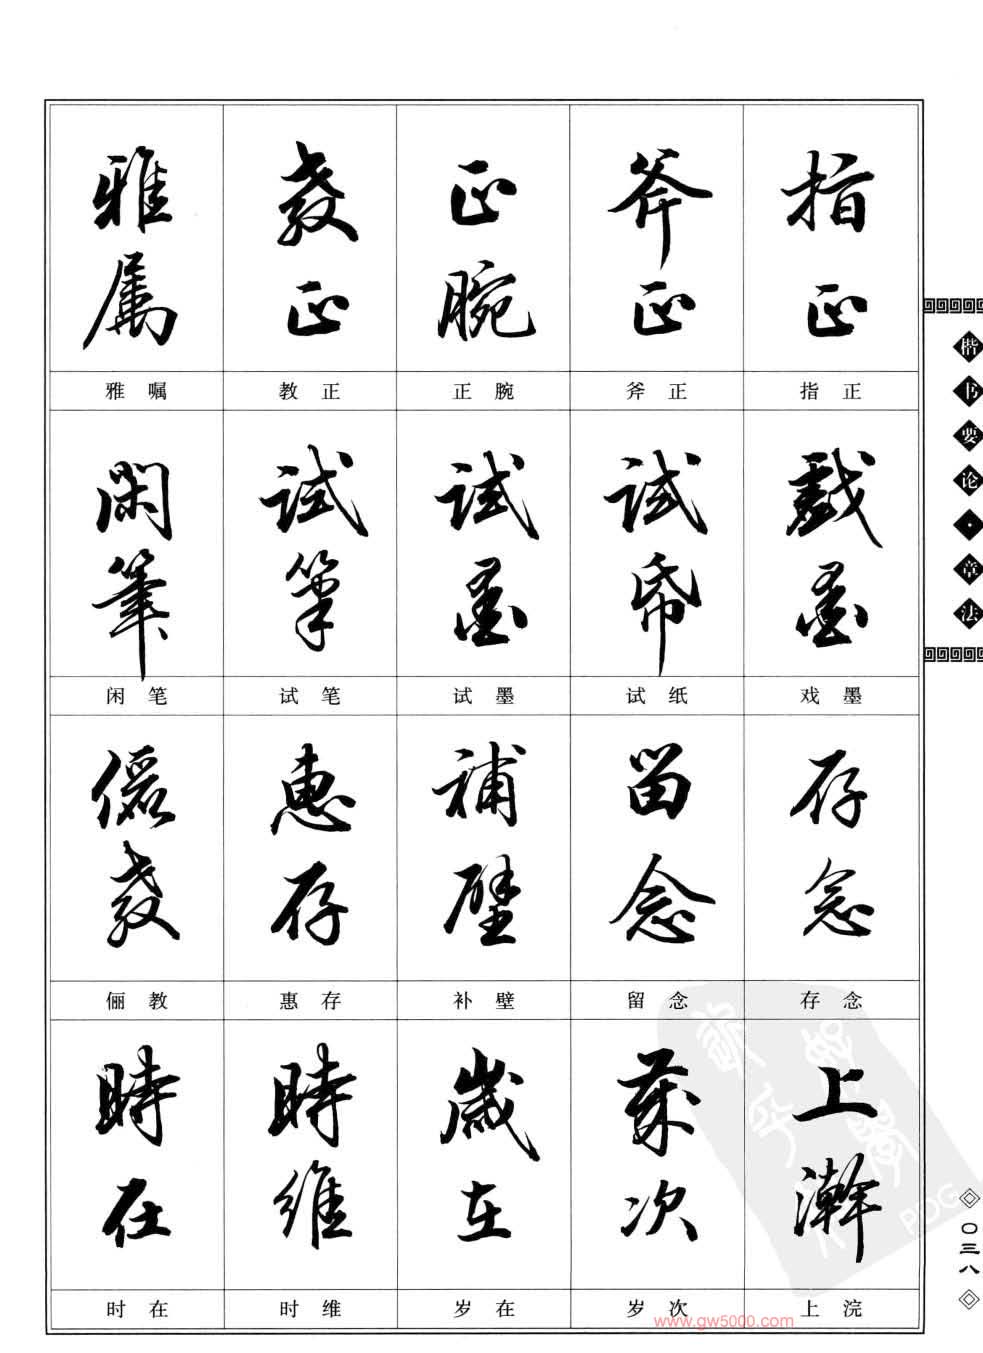 雅属 教正 正腕 斧正 指正
雅嘱 教正 正腕 斧正 指正
闲筆 试笔 试墨 试帋 戲墨
闲笔 试笔 试墨 试纸 戏墨
俪教 惠存 補壁 留念 存念
俪教 惠存 补壁 留念 存念
時在 時维 歲在 歲次 上澣
时在 时维 岁在 岁次 上浣
楷书要论·章法
〇三八
www.gw5000.com
PDG